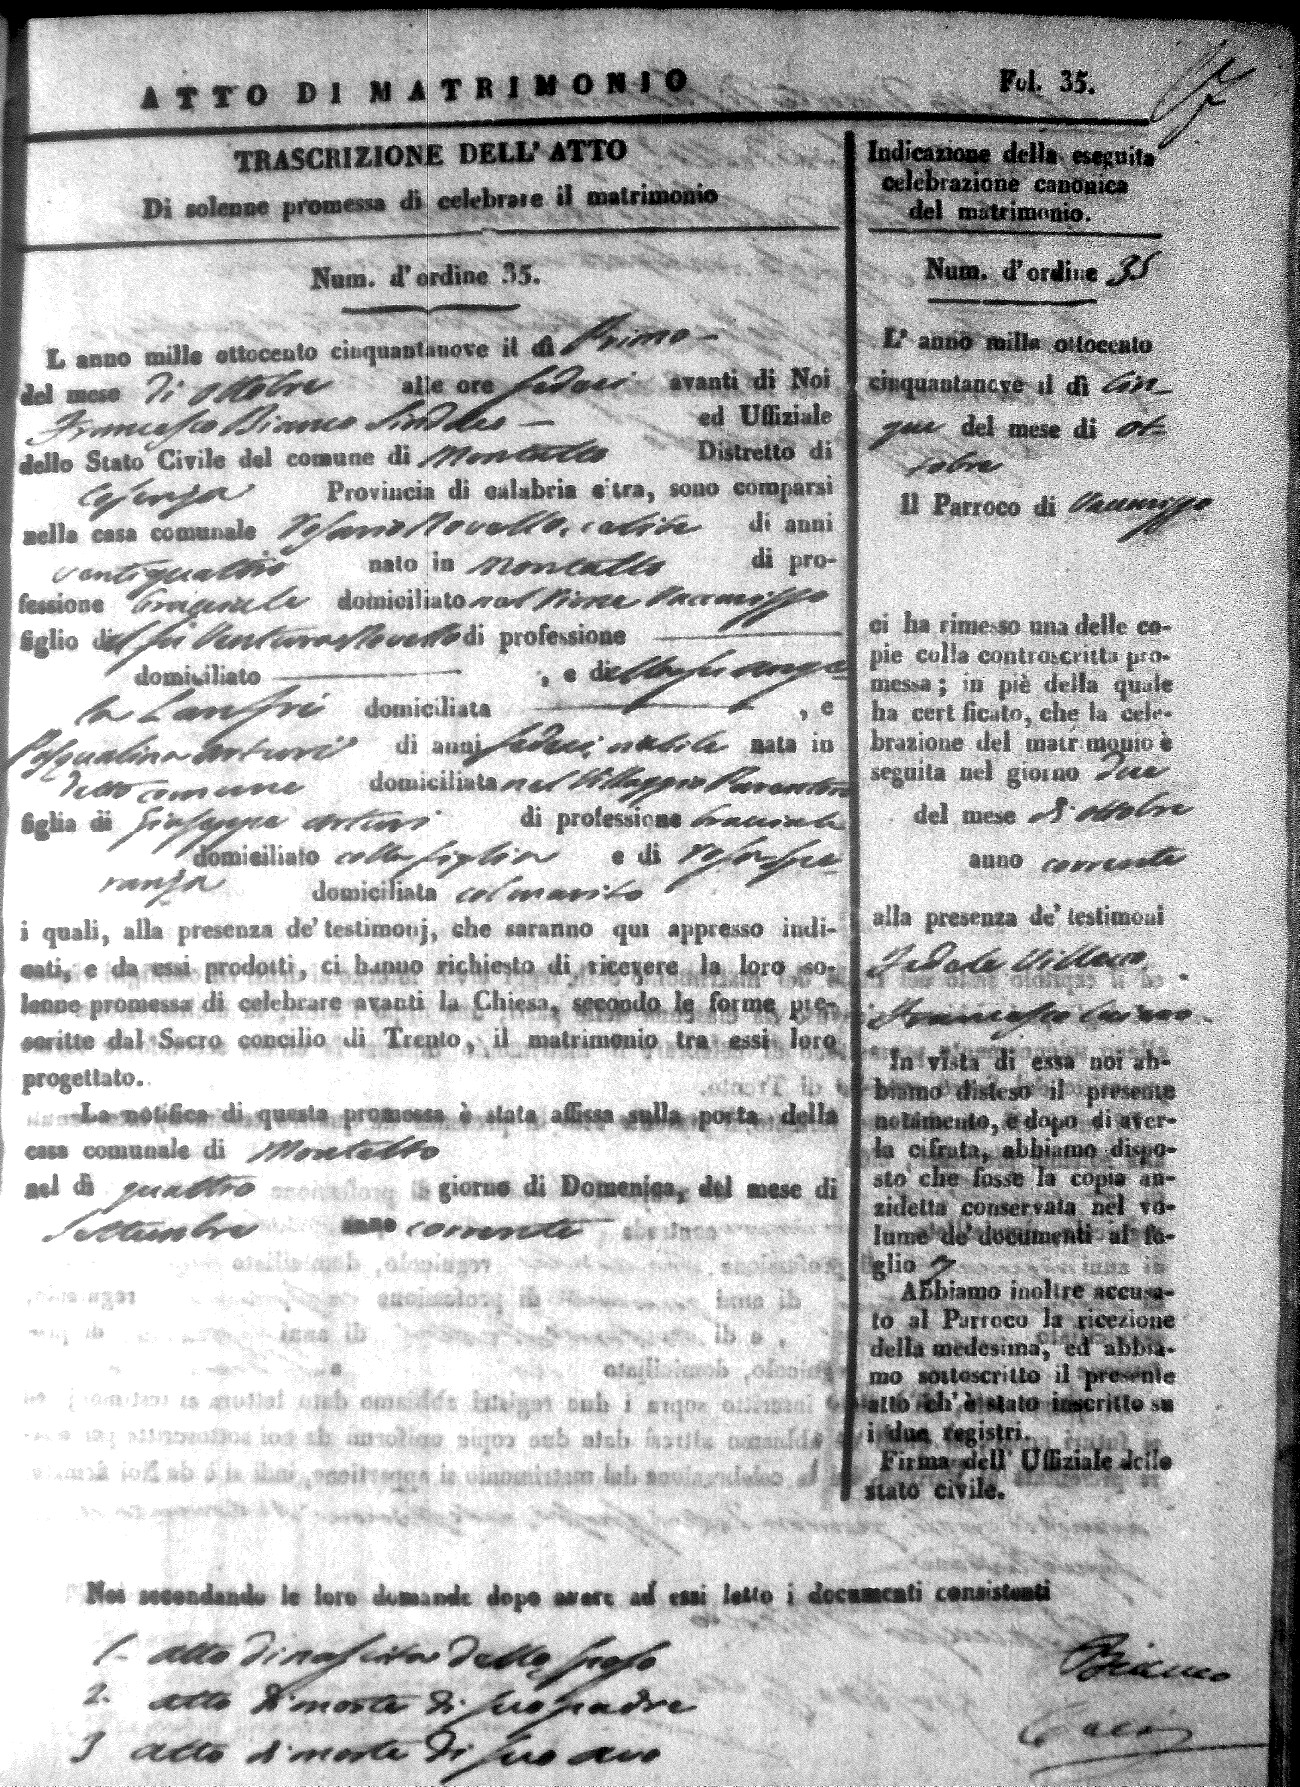 ATTO DI MATRIMONIO
Fol. 35.
TRASCRIZIONE DELL' ATTO
Di solenne promessa di celebrare il matrimonio
Num. d'ordine 35.
L anno mille ottocento cinquantanove il dì Primo
del mese di ottobre alle ore sedeci avanti di Noi
Francesco Bianco Sindaco ed Uffiziale
dello Stato Civile del comune di Montalto Distretto di
Cosenza Provincia di calabria citra, sono comparsi
nella casa comunale Rovello, celibe di anni
ventiquattro nato in Montalto di pro-
fessione bracciale domiciliato nel Rione Vaccarizzo
figlio del fu Ventura Rovello di professione
domiciliato , e della fu Ange-
la Lanfri domiciliata , e
Pasqualina Arturi di anni sedeci, nubile nata in
detto comune domiciliata nel Villaggio Parantoro
figlia di Giuseppe Arturi di professione bracciale
domiciliato colla figlia e di Rosa Spe-
ranza domiciliata col marito
i quali, alla presenza de' testimonj, che saranno qui appresso indi-
cati, e da essi prodotti, ci hanno richiesto di ricevere la loro so-
lenne promessa di celebrare avanti la Chiesa, secondo le forme pre-
scritte dal Sacro concilio di Trento, il matrimonio tra essi loro
progettato.
La notifica di questa promessa è stata affissa sulla porta della
casa comunale di Montalto
nel dì quattro giorno di Domenica, del mese di
Settembre anno corrente
Indicazione della eseguita
celebrazione canonica
del matrimonio.
Num. d'ordine 35
L' anno mille ottocento
cinquantanove il dì cin-
que del mese di ot-
tobre
Il Parroco di Vaccarizzo
ci ha rimesso una delle co-
pie colla controscritta pro-
messa; in piè della quale
ha cert ficato, che la cele-
brazione del matrimonio è
seguita nel giorno due
del mese di ottobre
anno corrente
alla presenza de' testimoni
Fedele Villano,
Francesco
In vista di essa noi ab-
biamo disteso il presente
notamento, e dopo di aver-
la cifrata, abbiamo dispo-
sto che fosse la copia an-
zidetta conservata nel vo-
lume de' documenti al fo-
glio 7
Abbiamo inoltre accusa-
to al Parroco la ricezione
della medesima, ed abbia-
mo sottoscritto il presente
atto ch' è stato inscritto su
i due registri.
Firma dell' Uffiziale dello
stato civile.
Noi secondando le loro domande dopo avere ad essi letto i documenti consistenti
1- atto di nascita dello sposo
2. atto di morte di suo padre
3 atto di morte di suo avo
Bianco